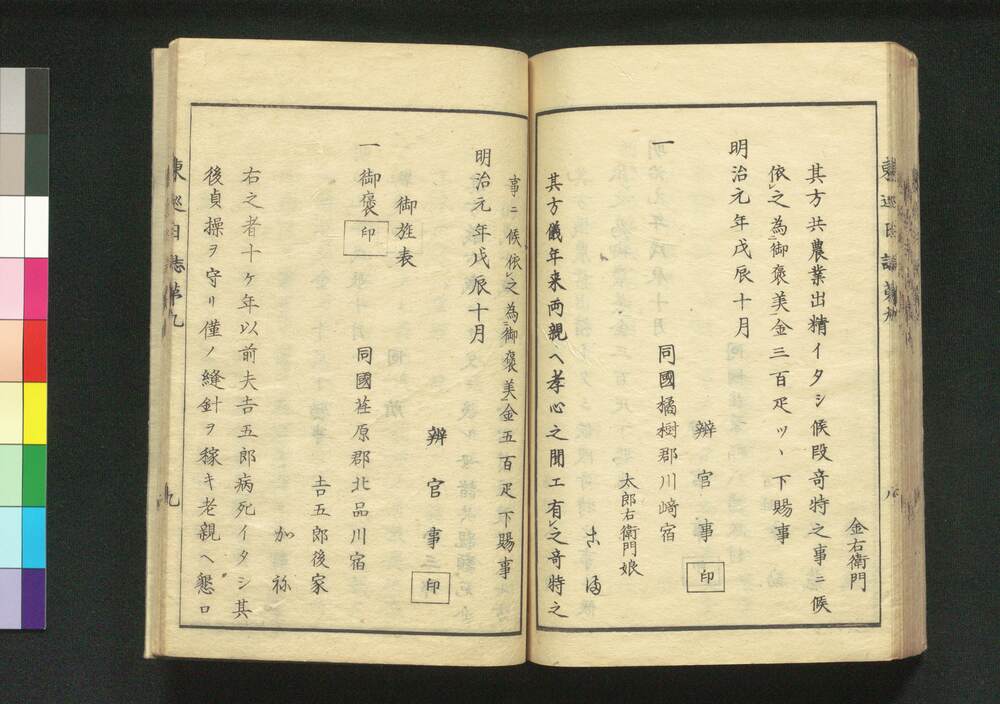 金右衛門
其方共農業出精イタシ候段奇特之事ニ候
依レ之為ニ御褒美金三百疋ツヽ下賜事
明治元年戊辰十月
辨官事 印
一 同國橘樹郡川﨑宿
太郎右衛門娘
其方儀年来両親ヘ孝心之聞エ有レ之奇特之
事ニ候依レ之為ニ御褒美金五百疋下賜事
明治元年戊辰十月
辨官事 印
御旌表
一御褒 印
同國荏原郡北品川宿
吉五郎後家
加祢
右之者十ケ年以前夫吉五郎病死イタシ其
後貞操ヲ守リ僅ノ縫針ヲ稼キ老親ヘ懇ロ
東巡日誌第九
九